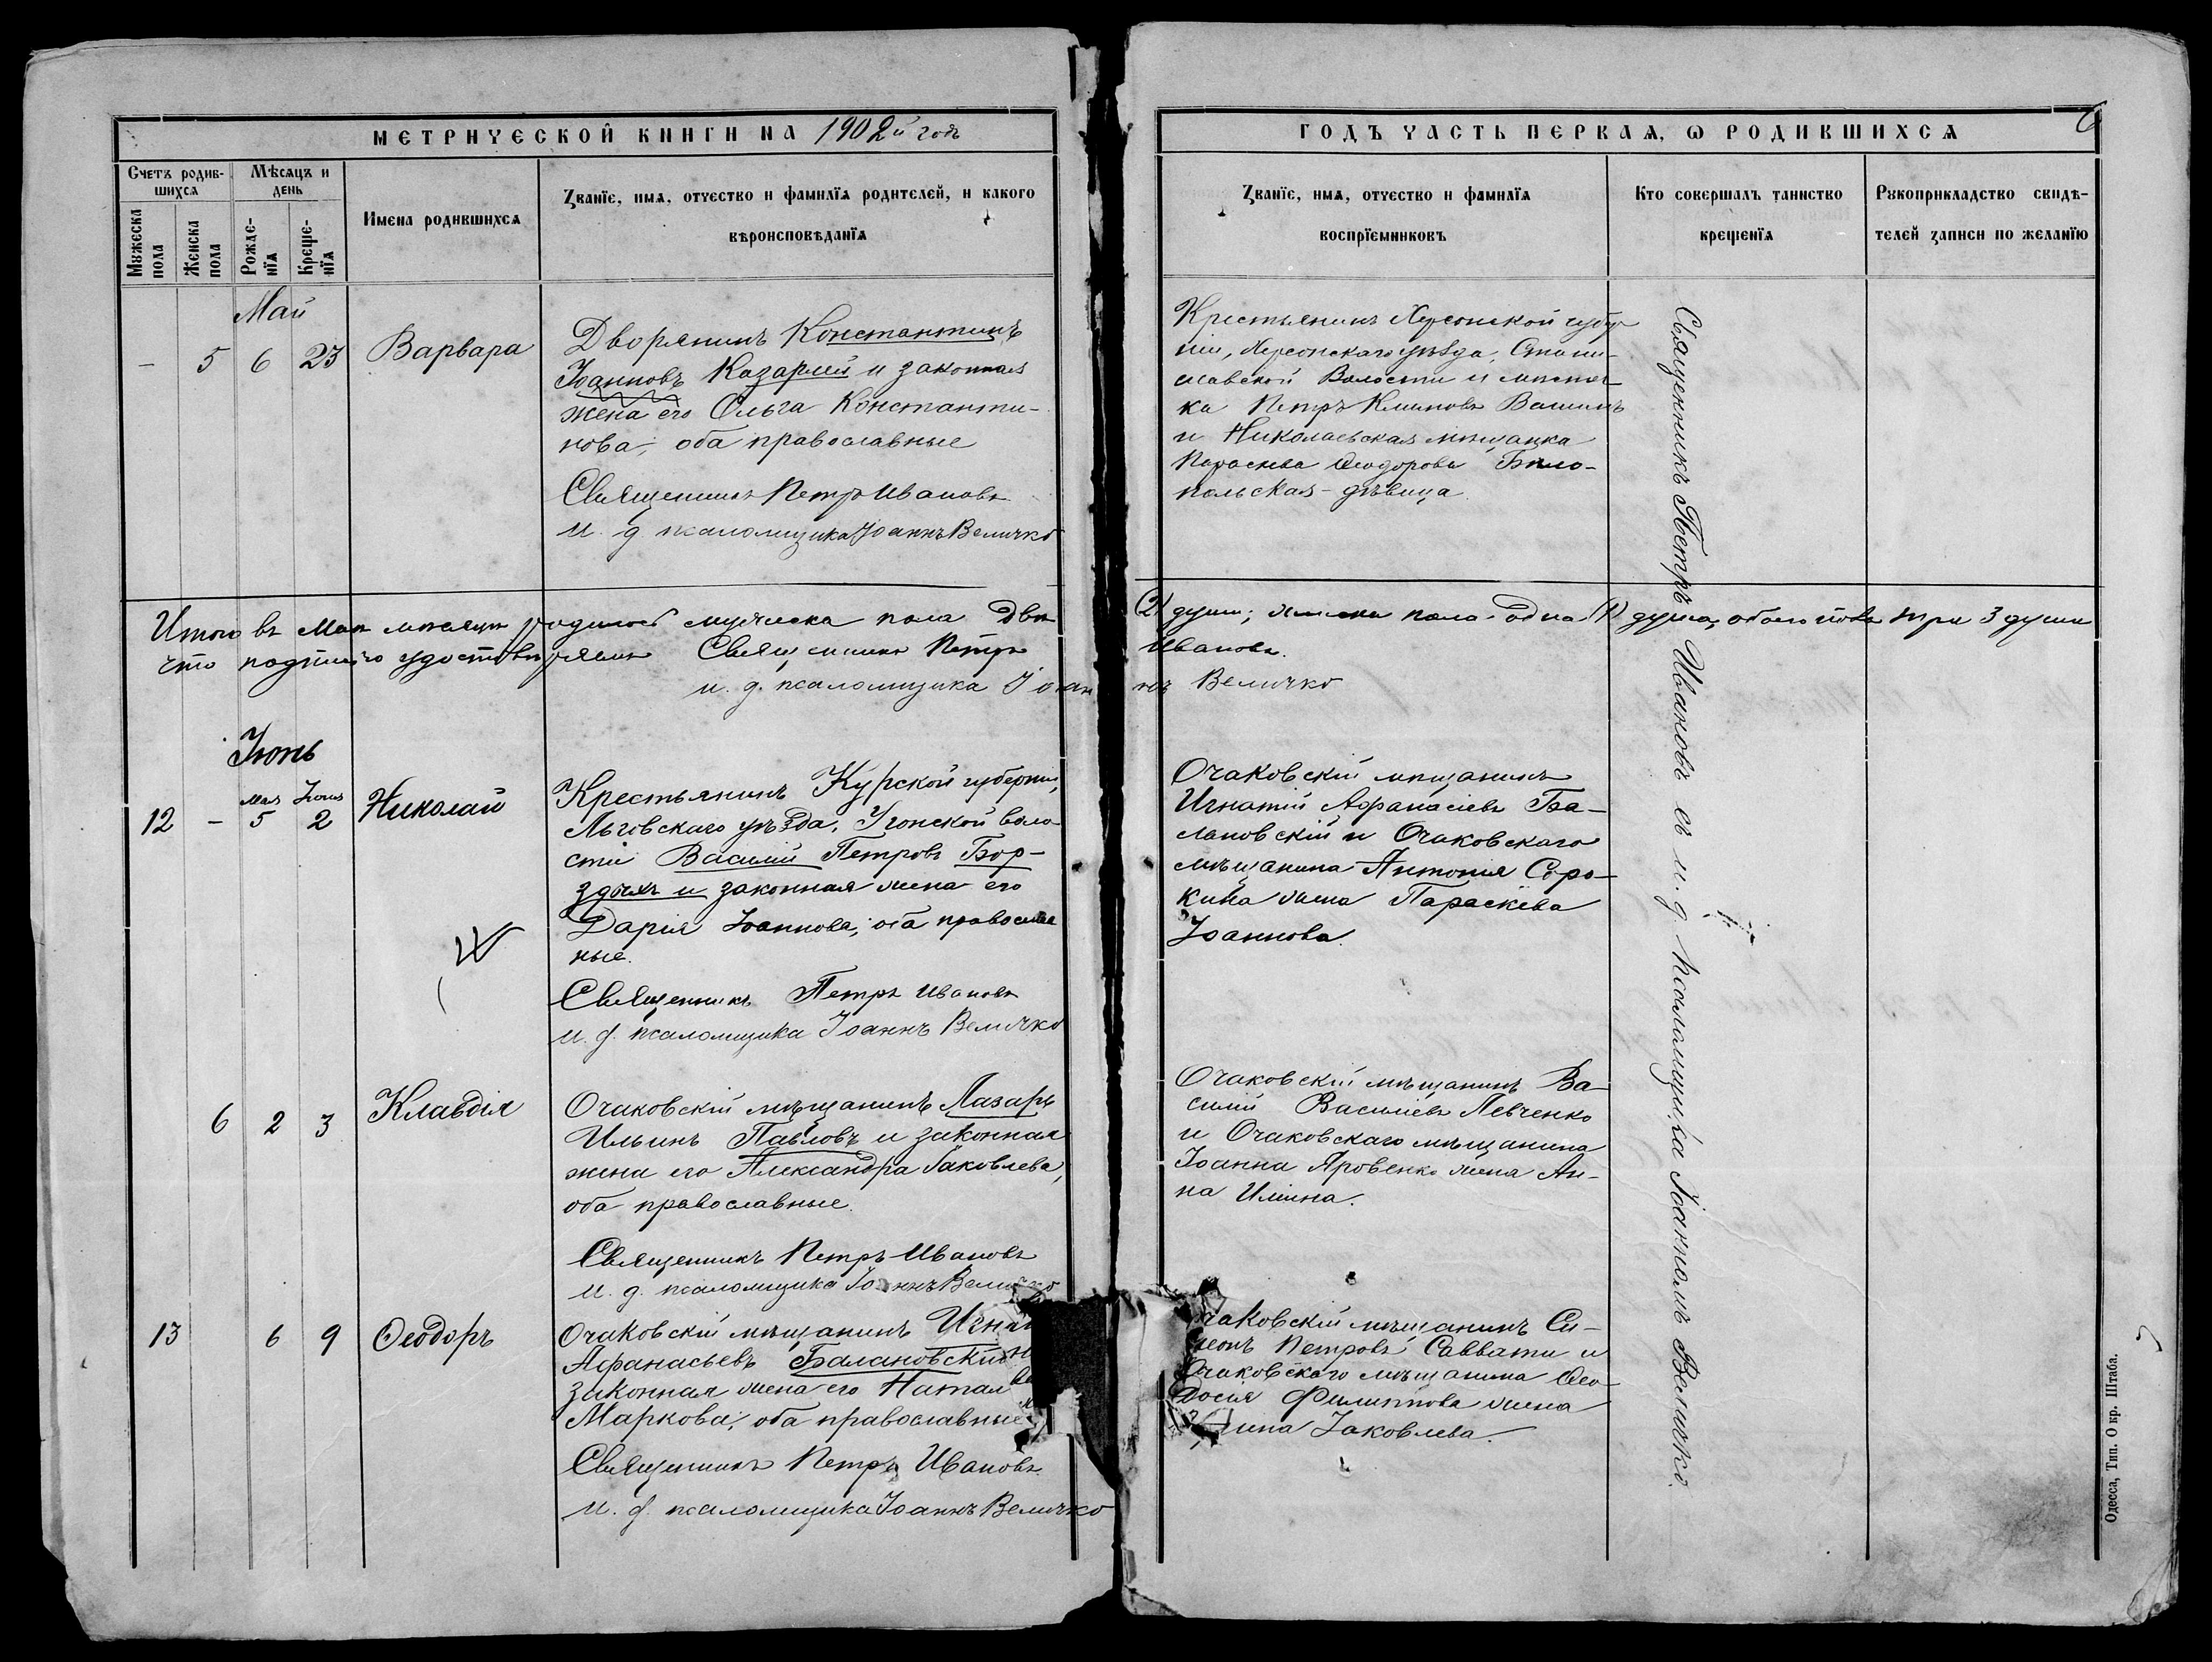 МЕТРИЧЕСКОЙ КНИГИ НА 1902й годъ
Счетъ родив-
шихся
Мѣсяцъ и
день
Мужеска
пола
Женска
пола
Рожде-
нія
Креще-
нія
Имена родившихся
Званіе, имя, отчество и фамилія родителей, и какого
вѣроисповѣданія
Май
– 5 6 23
Варвара
Дворянинъ Константинъ
Іоанновъ Казарий и законная
жена его Ольга Константи-
нова, оба православные
Священникъ Петръ Ивановъ
И. д. псаломщика Іоаннъ Величко
Итого въ Маѣ мѣсяцѣ родилось мужеска пола два
что подписью удостовѣряемъ Священникъ Петръ
и. д. псаломщика Іоан
Іюнь
12 –
Мая Іюня
5 2
Николай
Крестьянинъ Курской губерніи,
Льговскаго уѣзда, Угонской воло-
сти Василій Петровъ Бор-
здыхъ и законная жена его
Дарія Іоаннова, оба православ
ные.
Священникъ Петръ Ивановъ
И. д. псаломщика Іоаннъ Величко
6 2 3
Клавдія
Очаковскій мѣщанинъ Лазарь
Ильинъ Павловъ и законная
жена его Александра Іаковлева,
оба православные.
Священникъ Петръ Ивановъ
И. д. псаломщика Іоаннъ Величко
13 6 9
Ѳеодоръ
Очаковскій мѣщанинъ Игна
Афанасьевъ Балановскій и
законная жена его Натал
Маркова, оба православные
Священникъ Петръ Ивановъ
И. д. псаломщика Іоаннъ Величко
ГОДЪ ЧАСТЬ ПЕРВАЯ, Ѡ РОДИВШИХСЯ
6
Званіе, имя, отчество и фамилія
воспріемниковъ
Кто совершалъ таинство
крещенія
Рукоприкладство свидѣ-
телей записи по желанію
Крестьянинъ Херсонской губер
ніи, Херсонскаго уѣзда, Стани-
славской Волости и мѣстеч
ка Петръ Климовъ
и Николаевская мѣщанка
Параскева Ѳеодорова Бѣло-
польская – дѣвица.
(2) души; женска пола – одна (1) душа, обоего пола три 3 души
Ивановъ.
нъ Величко
Очаковскій мѣщанинъ
Игнатій Афанасіевъ Ба-
лановскій и Очаковскаго
мѣщанина Антонія Соро-
кина жена Параскева
Іоаннова.
Очаковскій мѣщанинъ Ва-
силій Василіевъ Левченко
и Очаковскаго мѣщанина
Іоанна Яровенко жена Ан-
на Ильина.
чаковскій мѣщанинъ Си-
меонъ Петровъ Саввати и
Очаковскаго мѣщанина Ѳео-
досія Филиппова жена
Іаковлева.
Священникъ Петръ Ивановъ съ и. д. псаломщика Іоанномъ Величко.
Одесса, Тип. Окр. Штаба.